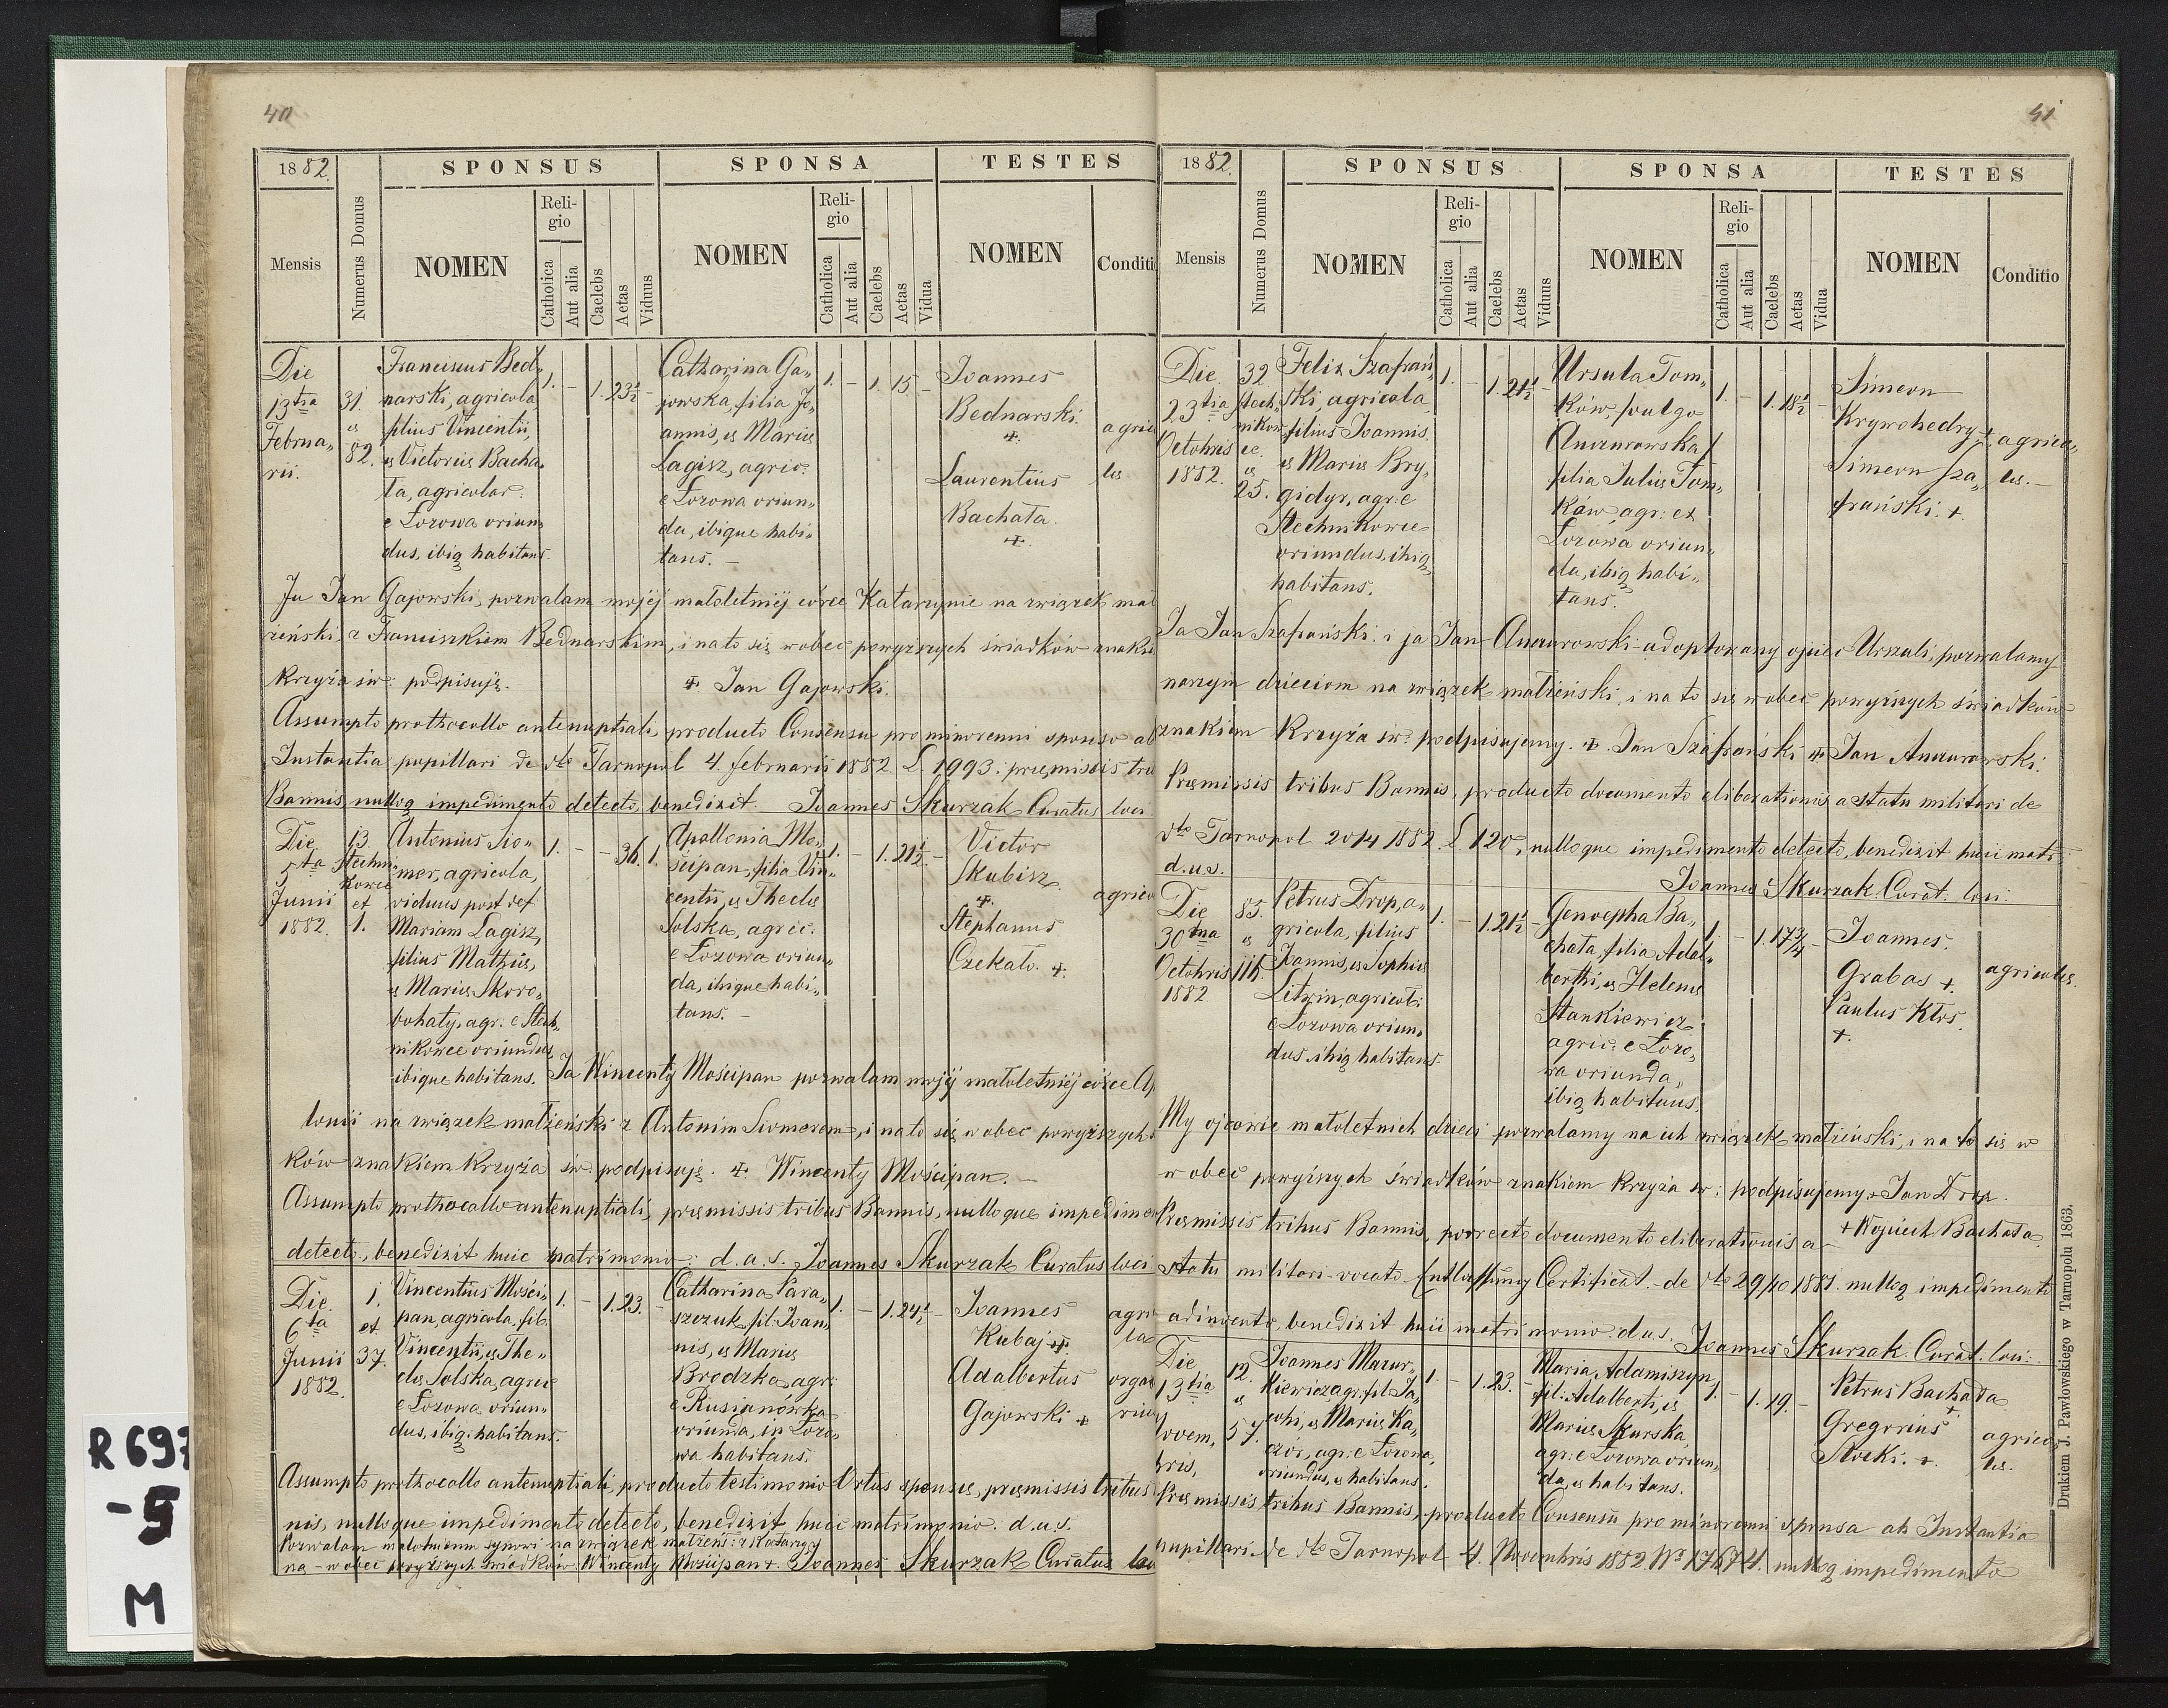 40
1882.
SPONSUS
SPONSA
TESTES
Mensis
Numerus Domus
NOMEN
Religio
Catholica
Aut alia
Caelebs
Aetas
Viduus
NOMEN
Religio
Catholica
Aut alia
Caelebs
Aetas
Vidua
NOMEN
Conditi
Die
13tia
Februa„
rii.
31.
et
82.
Franciscus Bed„
narski, agricola,
filius Vincentii,
et Victoriæ Bacha„
ta, agricolar.
e Łozowa oriun„
dus, ibiq habitans.
1. - 1. 23½ -
Catharina Ga„
jowska, filia Jo„
annis, et Mariæ
Łagisz, agric:
e Łozowa oriun„
da, ibique habi„
tans. -
1. - 1. 15. -
Joannes
Bednarski.
+.
Laurentius
Bachata.
+.
agrico
læ
Ja Jan Gajowski, pozwalam mojéj małoletniéj córce Katarzynie na związek mał
żeński z Franciszkiem Bednarskim, i na to się wobec powyższych świadków znaki
Krzyża św: podpisuję. + Jan Gajowski.
Assumpto prothocollo antenuptiali, producto Consensu pro minorenni sponso ab
Instantia pupillari de dto Tarnopol 4. februarii 1882 L 1993. præmissis tri
Bannis, nulloq impedimento detecto, benedixit. Joannes Skurzak Curatus loci
Die
5ta
Junii
1882.
13.
Stechni
kowce
et
1.
Antonius Sio„
mer, agricola,
viduus post def
Mariam Łagisz,
filius Mathiæ,
et Mariæ Skoro„
bohaty, agr: e Stech„
nikowce oriundus,
ibique habitans.
1. - - 36. 1.
Apollonia Mo„
ścipan, filia Vin„
centii, et Theclæ
Solska, agric:
e Łozowa oriun„
da, ibique habi„
tans. -
1. - 1. 21½. -
Victor
Skubisz.
+.
Stephanus
Czekało. +.
agrico
Ja Wincenty Mościpan pozwalam mojéj małoletniéj córce Ap
lonii na związek małżeński z Antonim Siomerem, i na to się w obec powyższych
ków znakiem Krzyża św. podpisuję. + Wincenty Mościpan. -
Assumpto prothocollo antenuptiali, præmissis tribus Bannis, nulloque impedimen
detecto, benedixit huic matrimonio: d.u.s. Joannes Skurzak Curatus loci
Die
6ta
Junii
1882.
1.
et
37.
Vincentius Mości„
pan, agricola, fil:
Vincentii, et The„
clæ Solska, agric
e Łozowa oriun„
dus, ibiq: habitans.
1. - 1. 23. -
Catharina Para„
szczuk, fil: Joan„
nis, et Mariæ
Brodzka, agr:
e Rusianówka
oriunda, in Łozo„
wa habitans.
1. - 1. 24½ -
Joannes
Kubaj +.
Adalbertus
Gajowski +
agri
la
orga
rius
Assumpto prothocollo antenuptiali, producto testimonio Ortus sponsæ, præmissis tribus
nis, nulloque impedimento detecto, benedixit huic matrimonio: d.u.s.
Pozwalam małoletniemu synowi na związek małżeńs: z Katarzy
ną - w obec powyższych świadków Wincenty Mościpan +. Joannes Skurzak Curatus loci
41
1882.
SPONSUS
SPONSA
TESTES
Mensis
Numerus Domus
NOMEN
Religio
Catholica
Aut alia
Caelebs
Aetas
Viduus
NOMEN
Religio
Catholica
Aut alia
Caelebs
Aetas
Vidua
NOMEN
Conditio
Die
23tia
Octobris
1882.
32
Stech„
nikow
ce.
et
25.
Felix Szafrań„
ski, agricola,
filius Joannis.
et Mariæ Bry„
gidyr, agr: e
Stechnikowce
oriundus, ibiq
habitans.
1. - 1. 21½ -
Ursula Tom„
ków, /vulgo
Anczurowska/
filia Juliæ Tom„
ków, agr: ex
Łozowa oriun„
da, ibiq habi„
tans.
1. - 1. 18½ -
Simeon
Krywohedry +
Simeon Sza„
frański. +
agrico„
læ. -
Ja Jan Szafrański. i ja Jan Anczurowski adoptowany ojciec Urszuli, pozwalamy
naszym dzieciom na związek małżeński, i na to się w obec powyższych świadków
znakiem Krzyża św: podpisujemy. + Jan Szafrański + Jan Anczurowski.
Præmissis tribus Bannis, producto documento eliberationis a statu militari de
dto Tarnopol 20/4 1882. L 120, nulloque impedimento detecto, benedixit huic matr:
d.u.s.
Joannes Skurzak Curat. loci.
Die
30ma
Octobris
1882.
85.
et
116.
Petrus Drop, a„
gricola, filius
Joannis, et Sophiæ
Litwin, agricol:
e Łozowa oriun„
dus ibiq habitans
1. - 1. 21½ -
Genoepha Ba„
chata, filia Adal„
berthi, et Helenæ
Stankiewicz
agric: e Łozo„
wa oriunda,
ibiq habitans.
1. - 1. 17¾ -
Joannes.
Grabas +.
Paulus Kłos.
+.
agricolæ.
My ojcowie małoletnich dzieci pozwalamy na ich związek małżeński, i na to się w
w obec powyższych świadków znakiem Krzyża św: podpisujemy + Jan Drop.
+ Wojciech Bachata.
Præmissis tribus Bannis, porrecto documento eliberationis a
statu militari vocato Entlassung Certificat. de dto 29/10 1881. nulloq impedimento
adinvento, benedixit huic matrimonio d.u.s. Joannes Skurzak. Curat. loci.
Die
13tia
Novem„
bris,
12.
et
57.
Joannes Mazur„
kiewicz, agr. fil: Ja„
cobi, et Mariæ Ka„
czór, agr: e Łozowa,
oriundus, et habitans.
1. - 1. 23. -
Maria Adamiszyn,
fil: Adalberti, et
Mariæ Skurska,
agr: e Łozowa oriun„
da, et habitans.
1. - 1. 19. -
Petrus Bachata
+
Gregorius
Słocki. +.
agrico
læ.
Præmissis tribus Bannis, producto Consensu pro minorenni sponsa ab Instantia
pupillari de dto Tarnopol 4. Novembris 1882 No 17674. nulloq impedimento
Drukiem J. Pawłowskiego w Tarnopolu 1863.
R 697
-5
M